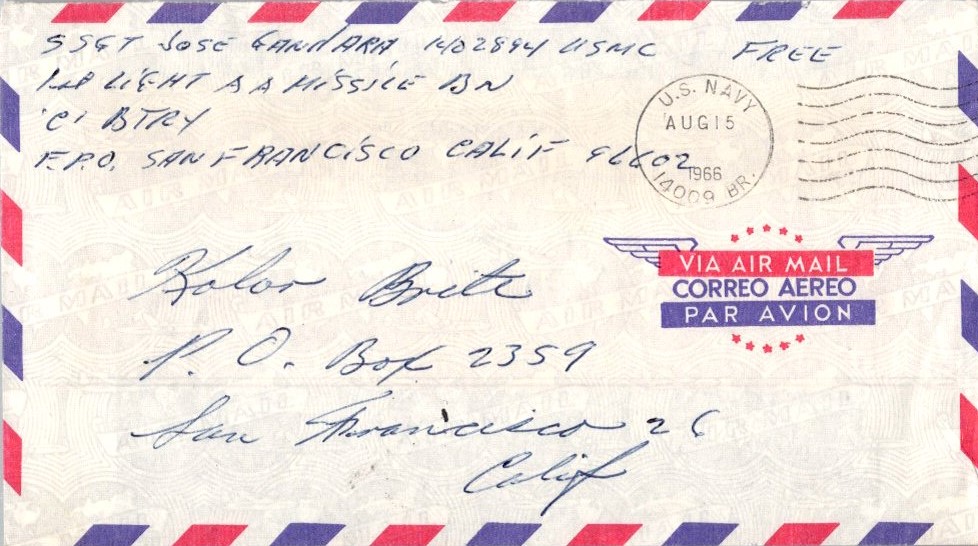 SSGT JOSE GANDARA 1402894 USMC FREE
1ST LIGHT A A MISSILE BN
'C' BTRY
F.P.O. SAN FRANCISCO CALIF 96602
U.S. NAVY
AUG 15
1966
14009 BR.
VIA AIR MAIL
CORREO AEREO
PAR AVION
Kolor Brite
P. O. Box 2359
San Francisco 26
Calif